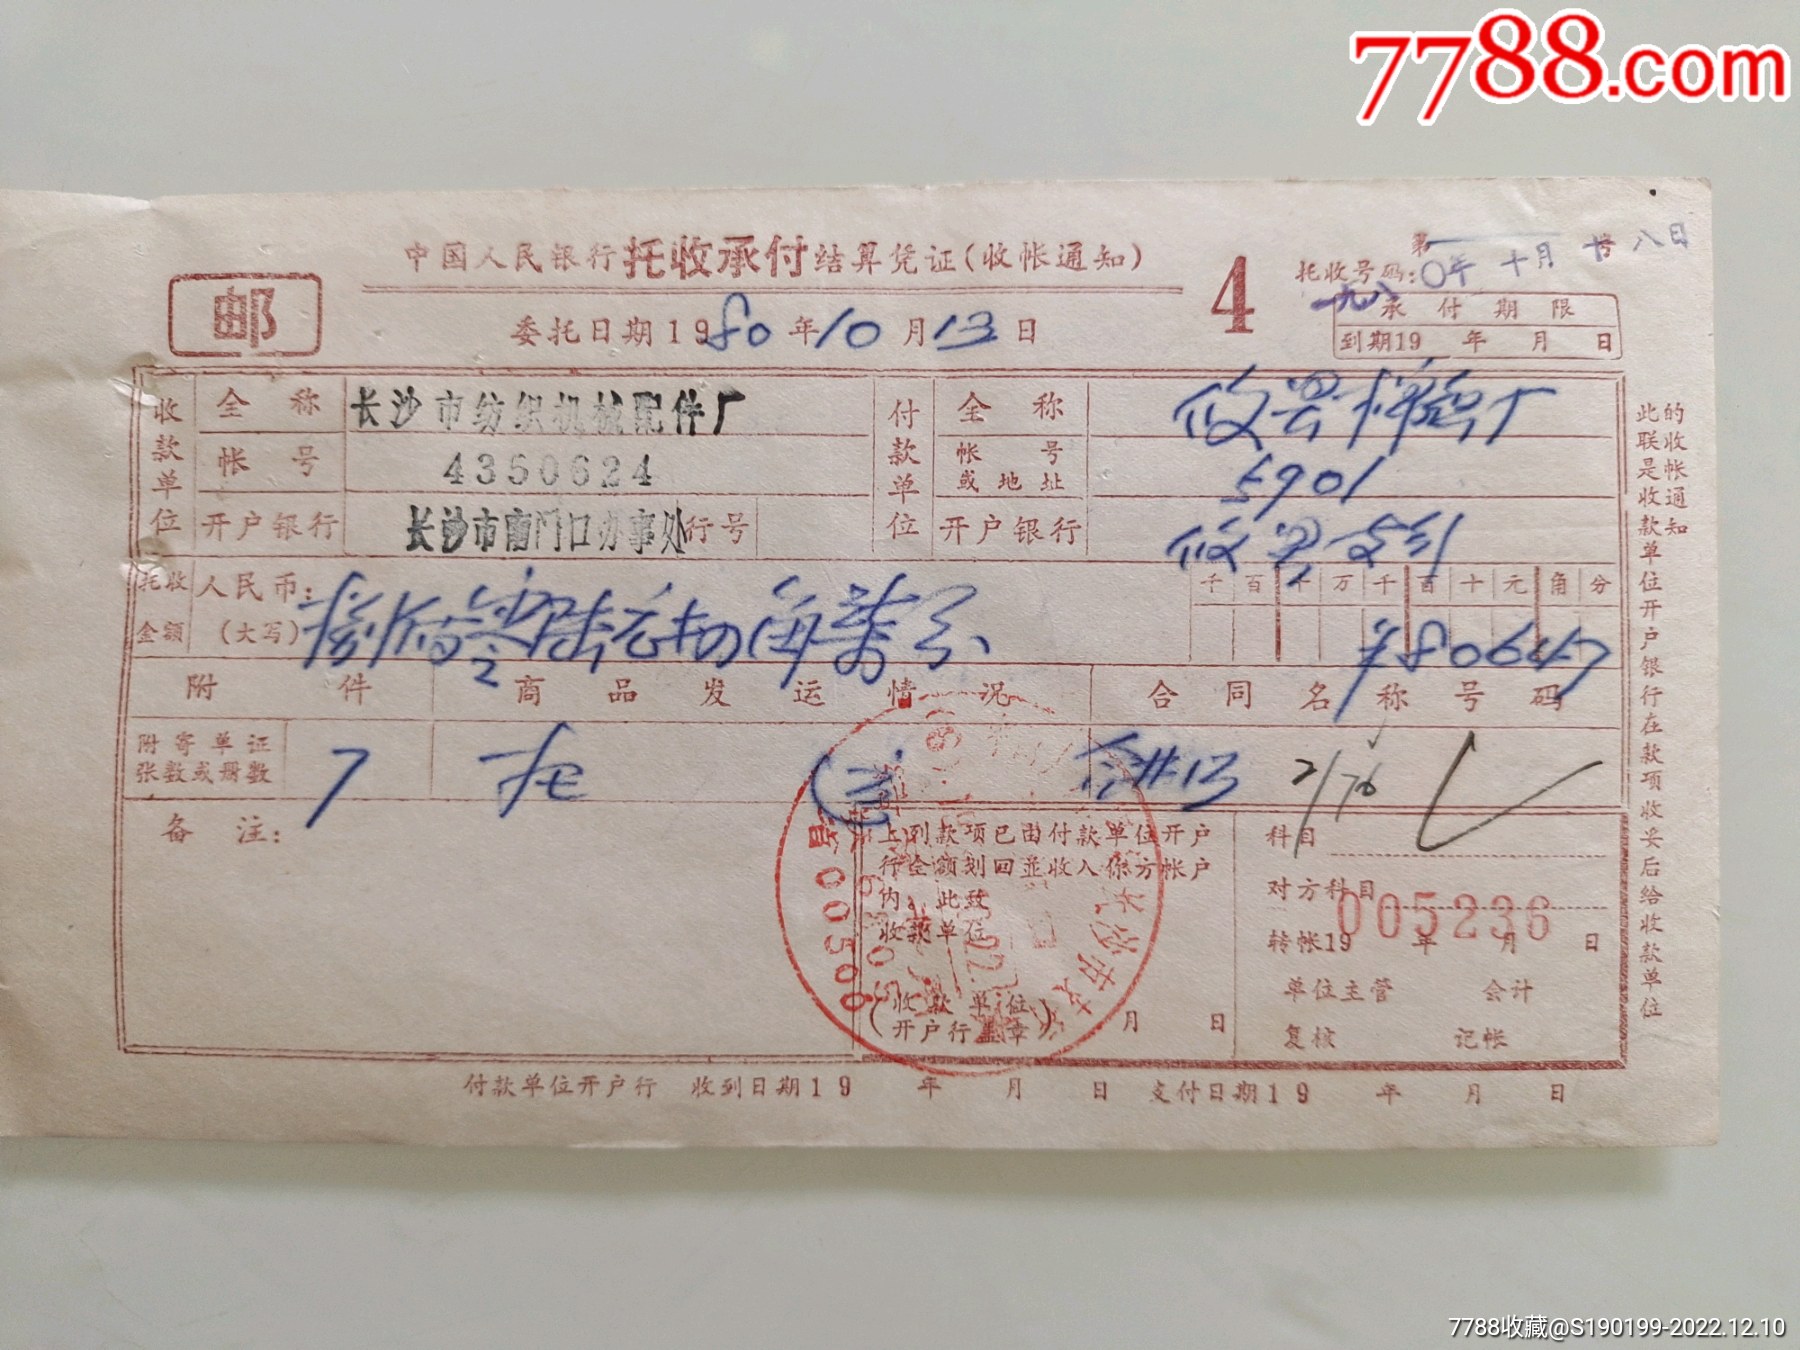 7788.com
中国人民银行托收承付结算凭证(收帐通知)
4
第 号
托收号码:
一九八〇年十月十八日
邮
委托日期1980年10月13日
承付期限
到期19 年 月 日
收款单位
全称 长沙市纺织机械配件厂
帐号 4350624
开户银行 长沙市南门口办事处 行号
付款单位
全称 攸县棉织厂
帐号或地址 5901
开户银行 攸县支行
托收金额 人民币:(大写) 捌佰零陆元 角柒分
千百十万千百十元角分
¥80647
附件 商品发运情况 合同名称号码
附寄单证张数或册数 7
合#13
2/76
备注:
上列款项已由付款单位开户
行全额划回並收入你方帐户
内。此致
收款单位
(收款单位
开户行盖章) 月 日
科目
对方科目
005236
转帐19 年 月 日
单位主管 会计
复核 记帐
付款单位开户行 收到日期19 年 月 日 支付日期19 年 月 日
此联是收款单位开户银行在款项收妥后给收款单位
的收帐通知
00506
7788收藏@S190199-2022.12.10